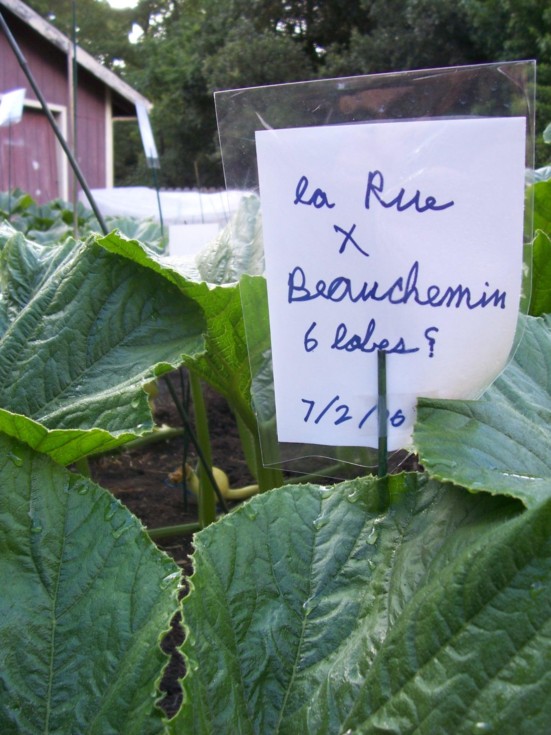 la Rue
X
Beauchemin
6 lobes
7/2/